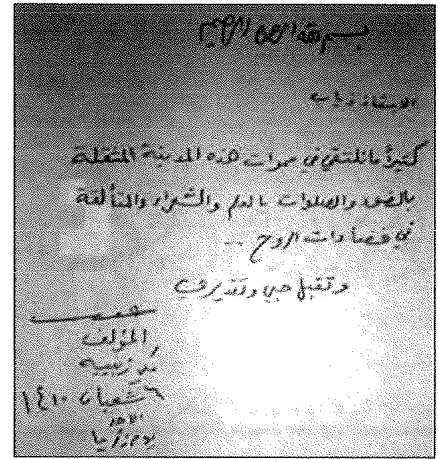 بسم الله الرحمن الرحيم
الاستاذ ذياب
كثيراً ما نلتقي في هذه المدينة المثقلة
والصلوات بالعلم والشعراء والمتألقة
في فضاءات الروح ..
وتقبل حبي وتقديري
المؤلف
٦ شعبان ١٤١٠